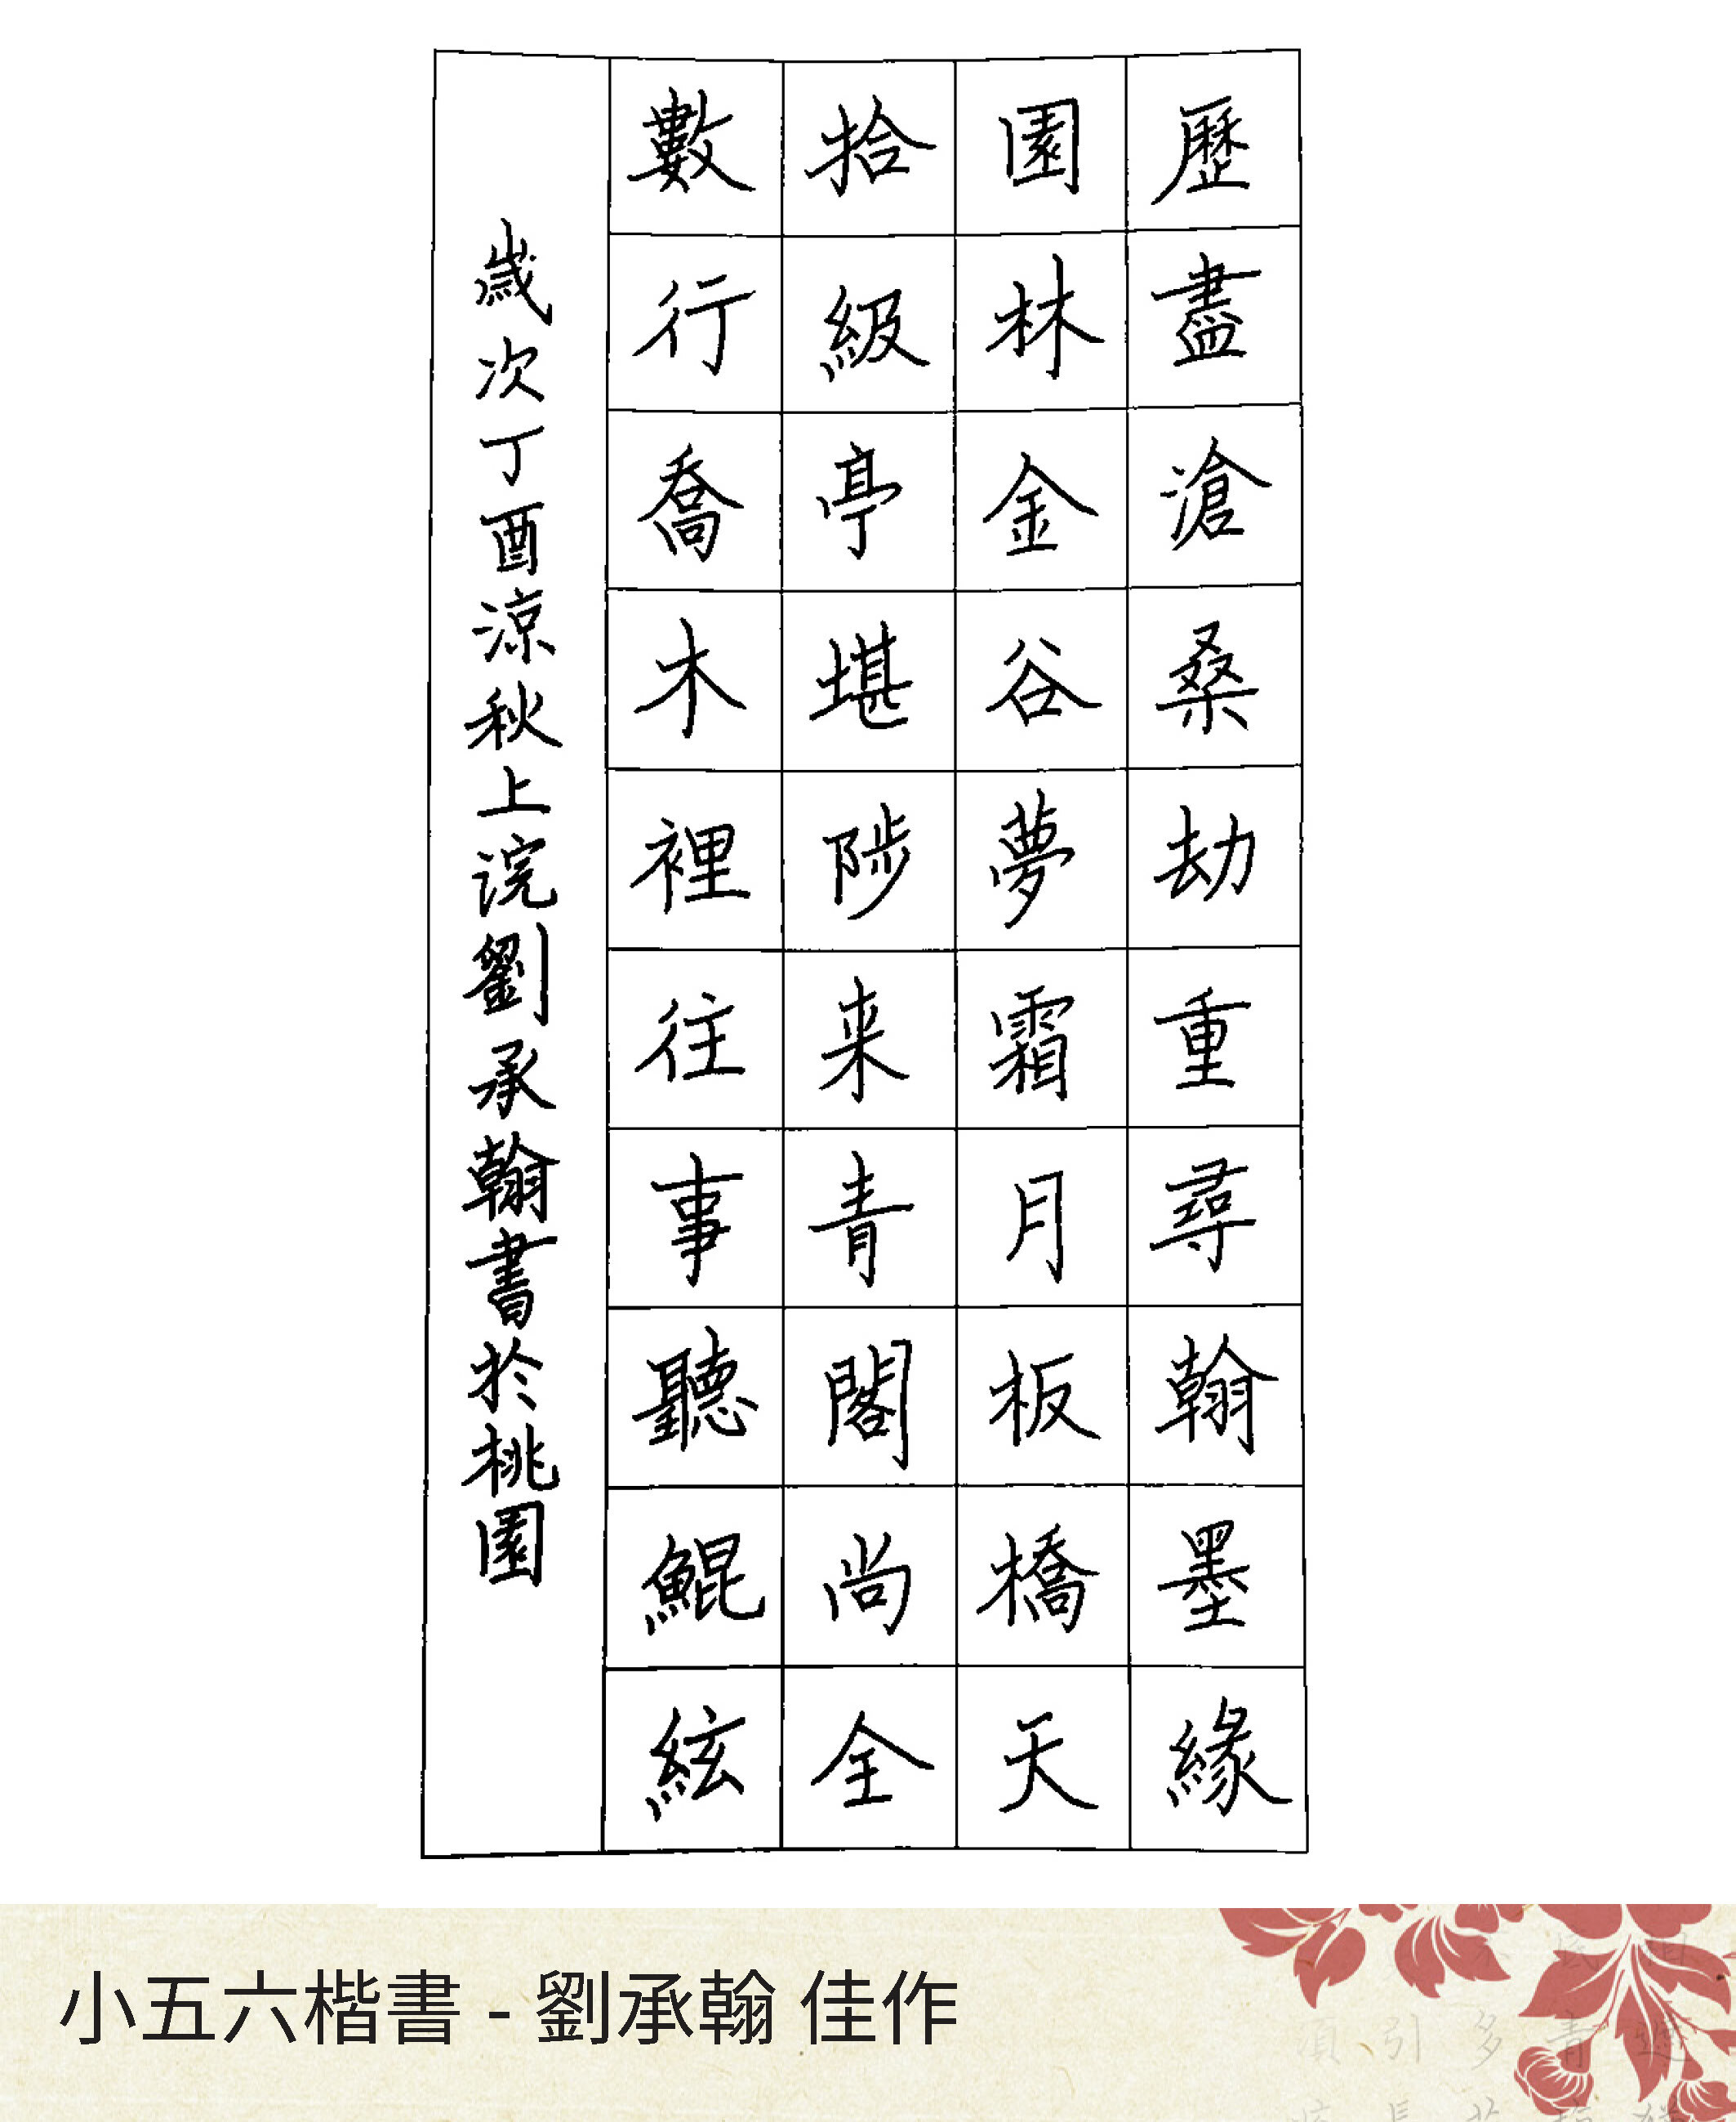 歷盡滄桑劫重尋翰墨緣
園林金谷夢霜月板橋天
拾級亭堪陟来青閣尚全
數行喬木裡往事聽鯤絃
歲次丁酉涼秋上浣劉承翰書於桃園
小五六楷書 - 劉承翰 佳作